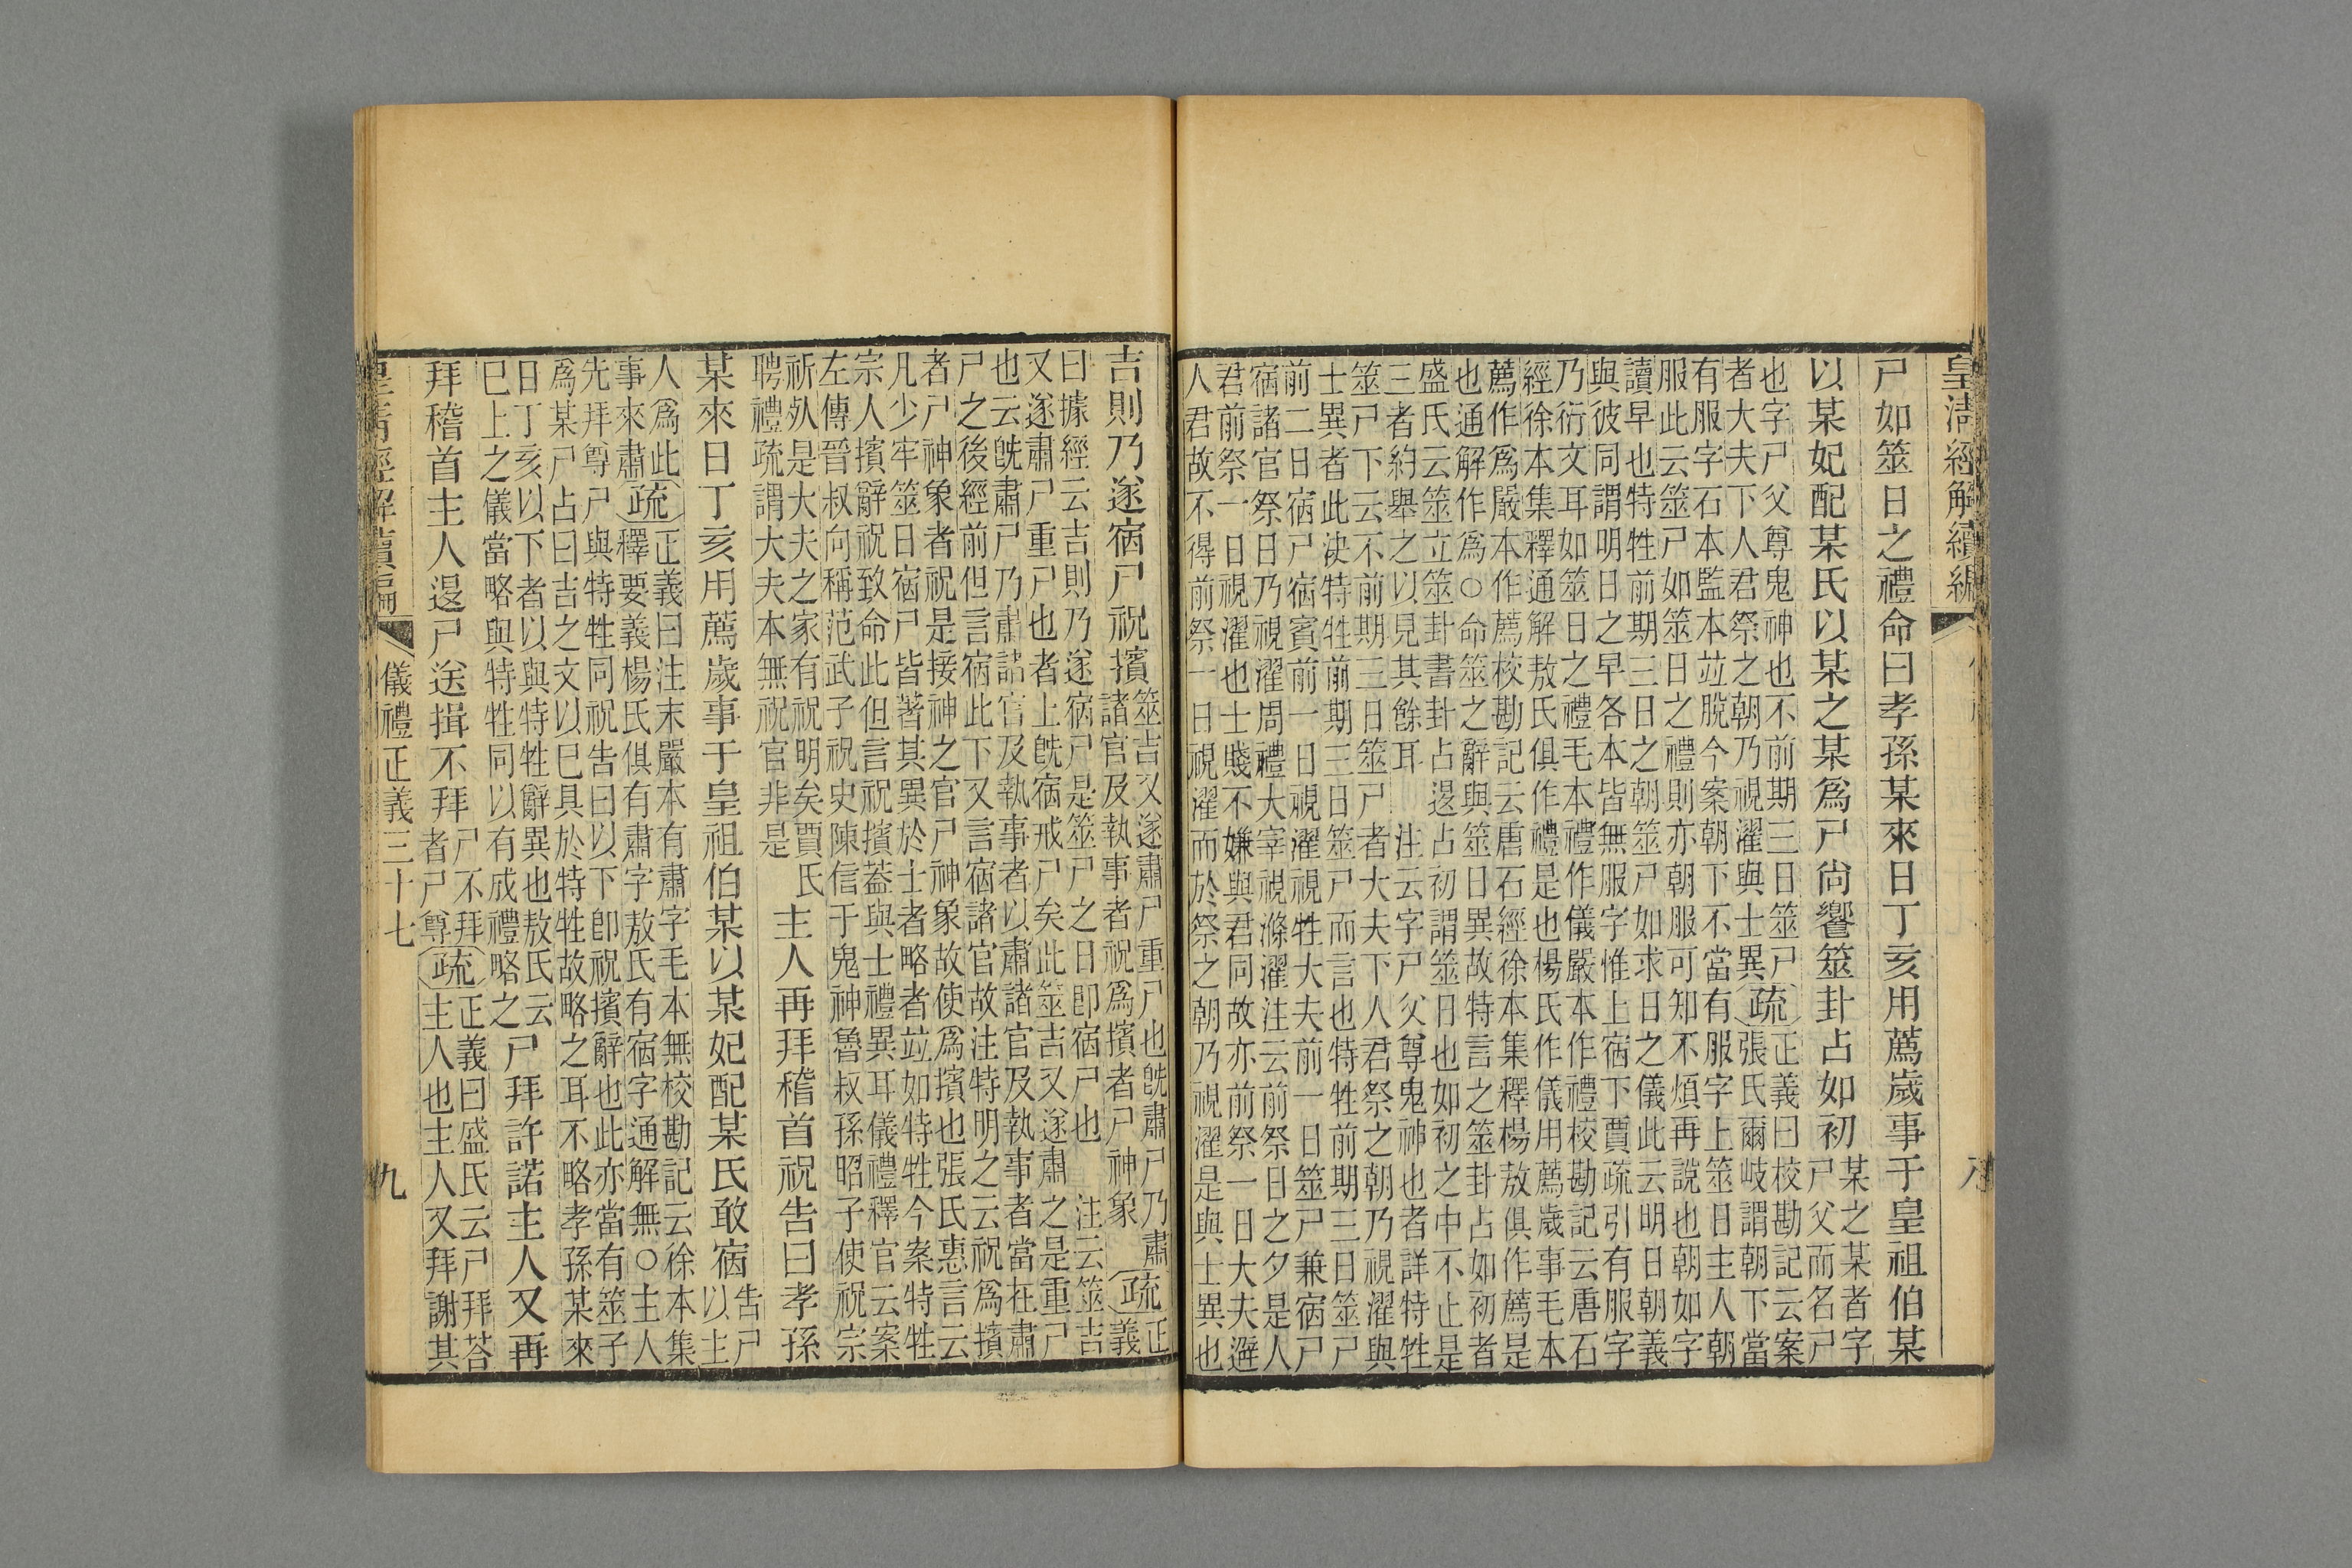 皇清經解續編
尸如筮日之禮命曰孝孫某來日丁亥用薦歲事于皇祖伯某
以某妃配某氏以某之某爲尸尚饗筮卦占如初
某之某者字
尸父而名尸
也字尸父尊鬼神也不前期三日筮尸
者大夫下人君祭之朝乃視濯與士異
疏
正義曰校勘記云案
張氏爾岐謂朝下當
有服字石本監本竝脫今案朝下不當有服字上筮日主人朝
服此云筮尸如筮日之禮則亦朝服可知不煩再說也朝如字
讀早也特牲前期三日之朝筮尸如求日之儀此云明日朝義
與彼同謂明日之早各本皆無服字惟上宿下賈疏引有服字
乃衍文耳如筮日之禮毛本禮作儀嚴本作禮校勘記云唐石
經徐本集釋通解敖氏俱作禮是也楊氏作儀用薦歲事毛本
薦作爲嚴本作薦校勘記云唐石經徐本集釋楊敖俱作薦是
也通解作爲○命筮之辭與筮日異故特言之筮卦占如初者
盛氏云筮立筮卦書卦占退占初謂筮日也如初之中不止是
三者約舉之以見其餘耳　注云字尸父尊鬼神也者詳特牲
筮尸下云不前期三日筮尸者大夫下人君祭之朝乃視濯與
士異者此決特牲前期三日筮尸而言也特牲前期三日筮尸
前二日宿尸宿賓前一日視濯視牲大夫前一日筮尸兼宿尸
宿諸官祭日乃視濯周禮大宰視滌濯注云前祭日之夕是人
君前祭一日視濯也士賤不嫌與君同故亦前祭一日大夫避
人君故不得前祭一日視濯而於祭之朝乃視濯是與士異也
吉則乃遂宿尸祝擯
筮吉又遂肅尸重尸也旣肅尸乃肅
諸官及執事者祝爲擯者尸神象
疏
正
義
曰據經云吉則乃遂宿尸是筮尸之日卽宿尸也　注云筮吉
又遂肅尸重尸也者上旣宿戒尸矣此筮吉又遂肅之是重尸
也云旣肅尸乃肅諸官及執事者以肅諸官及執事者當在肅
尸之後經前但言宿此下又言宿諸官故注特明之云祝爲擯
者尸神象者祝是接神之官尸神象故使爲擯也張氏惠言云
凡少牢筮日宿尸皆著其異於士者略者竝如特牲今案特牲
宗人擯辭祝致命此但言祝擯蓋與士禮異耳儀禮釋官云案
左傳晉叔向稱范武子祝史陳信于鬼神魯叔孫昭子使祝宗
祈死是大夫之家有祝明矣賈氏
聘禮疏謂大夫本無祝官非是
主人再拜稽首祝告曰孝孫
某來日丁亥用薦歲事于皇祖伯某以某妃配某氏敢宿
告尸
以主
人爲此
事來肅
疏
正義曰注末嚴本有肅字毛本無校勘記云徐本集
釋要義楊氏俱有肅字敖氏有宿字通解無○主人
先拜尊尸與特牲同祝告曰以下卽祝擯辭也此亦當有筮子
爲某尸占曰吉之文以巳具於特牲故略之耳不略孝孫某來
日丁亥以下者以與特牲辭異也敖氏云
巳上之儀當略與特牲同以有成禮略之
尸拜許諾主人又再
拜稽首主人退尸送揖不拜
尸不拜
者尸尊
疏
正義曰盛氏云尸拜荅
主人也主人又拜謝其
皇清經解續編
儀禮正義三十七
九